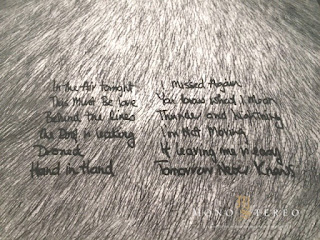 In the Air tonight
This Must Be love
Behind the lines
The Roof is leaking
Droned
Hand in Hand
I Missed Again
You Know What I Mean
Thunder and Lightning
I'm Not Moving
If leaving me is easy
Tomorrow Never Knows
MONO STEREO